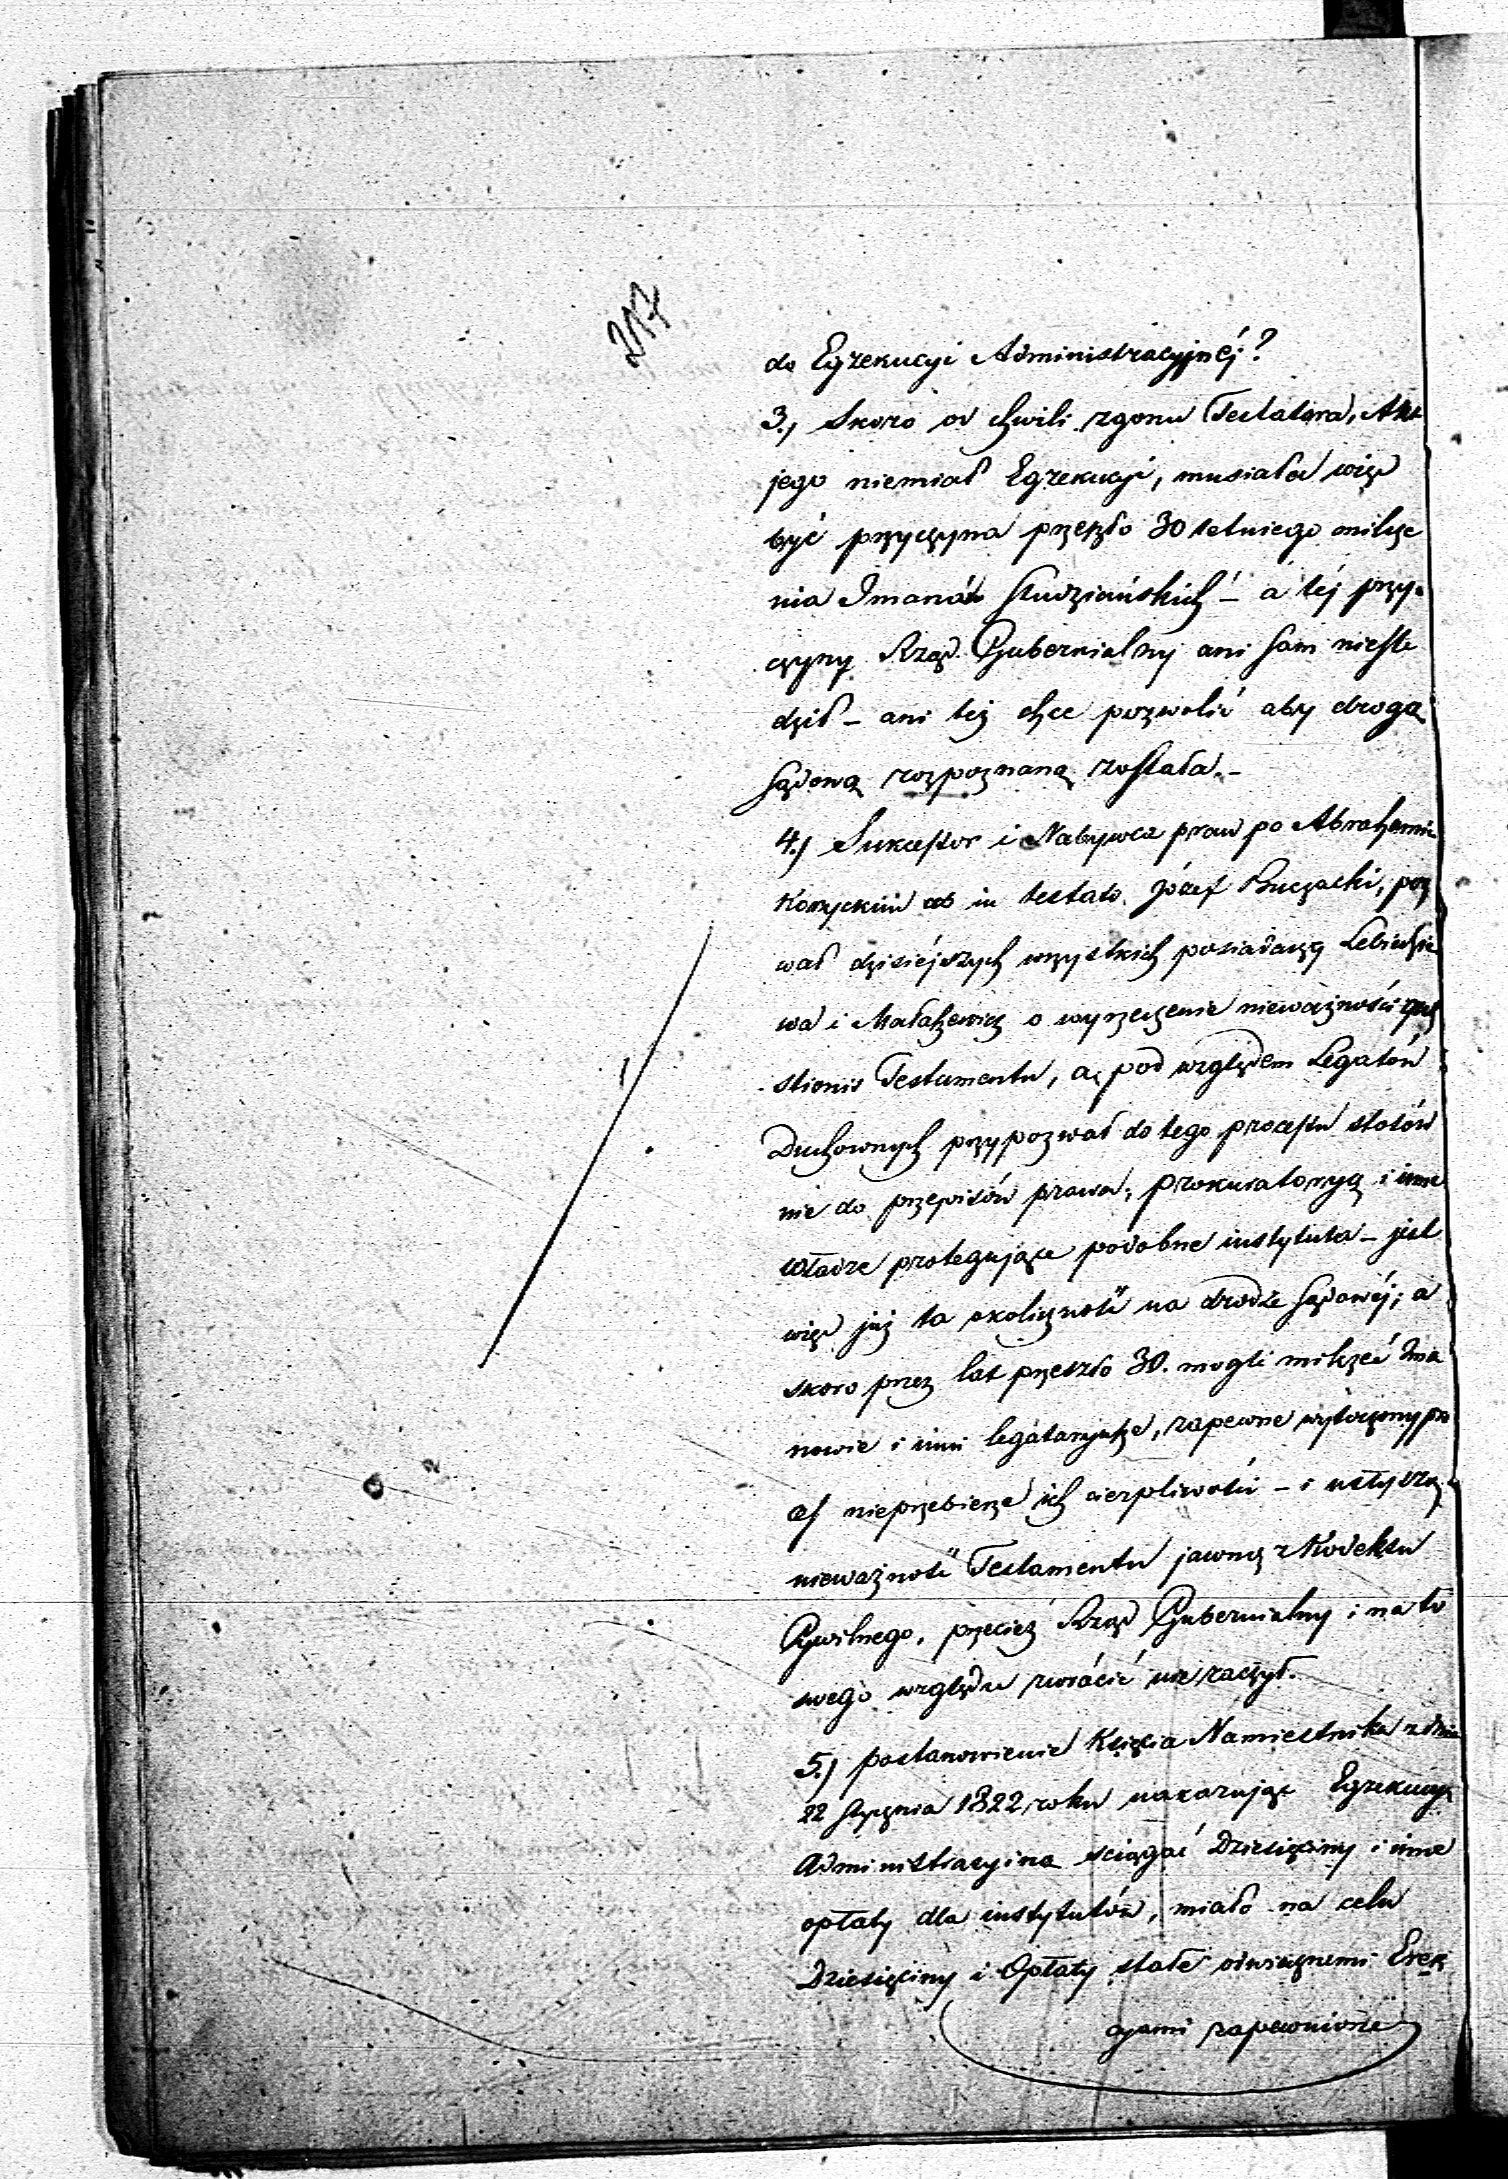 217
do Egzekucyi Administracyjnéj?
3.) Skoro od chwili zgonu Testatora, Akt
jego niemiał Egzekucyi, musiała więc
być przyczyna przeszło 30 letniego milcze
nia Imanów Studziańskich – a téj przy-
czyny Rząd Gubernialny ani sam nieśle
dził – ani też chce pozwolić aby drogą
sądową rozpoznaną została. –
4.) Sukcessor i Nabywca praw po Abrahamie
Koryckim ab in testato Józef Buczacki, poz
wał dzisiéjszych wszystkich posiadaczy Lebiedzie
wa i Małaszewicz o wyrzeczenie nieważności que
stionis Testamentu, a pod względem Legatów
Duchownych przypozwał do tego processu stosów
nie do przepisów prawa, prokuratoryą i inne
Władze protegujące podobne instytuta – jest
więc już ta okoliczność na drodze Sądowéj; a
skoro przez lat przeszło 30. mogli milczeć Ima
nowie i inni legataryusze, zapewne wytoczony pro
cess nieprzebierze ich cierpliwości – i usłyszą
nieważność Testamentu jawną z Kodeksu
Cywilnego, przecież Rząd Gubernialny i na to
swego względu zwrócić nie raczył.
5.) postanowienie Księcia Namiestnika z dnia
22 Stycznia 1822 roku nakazując Egzekucyą
Administracyjną ściągać Dziesięciny i inne
opłaty dla instytutów, miało na celu
Dziesięciny i Opłaty stałe odwiecznemi Erek
cyami zapewnione